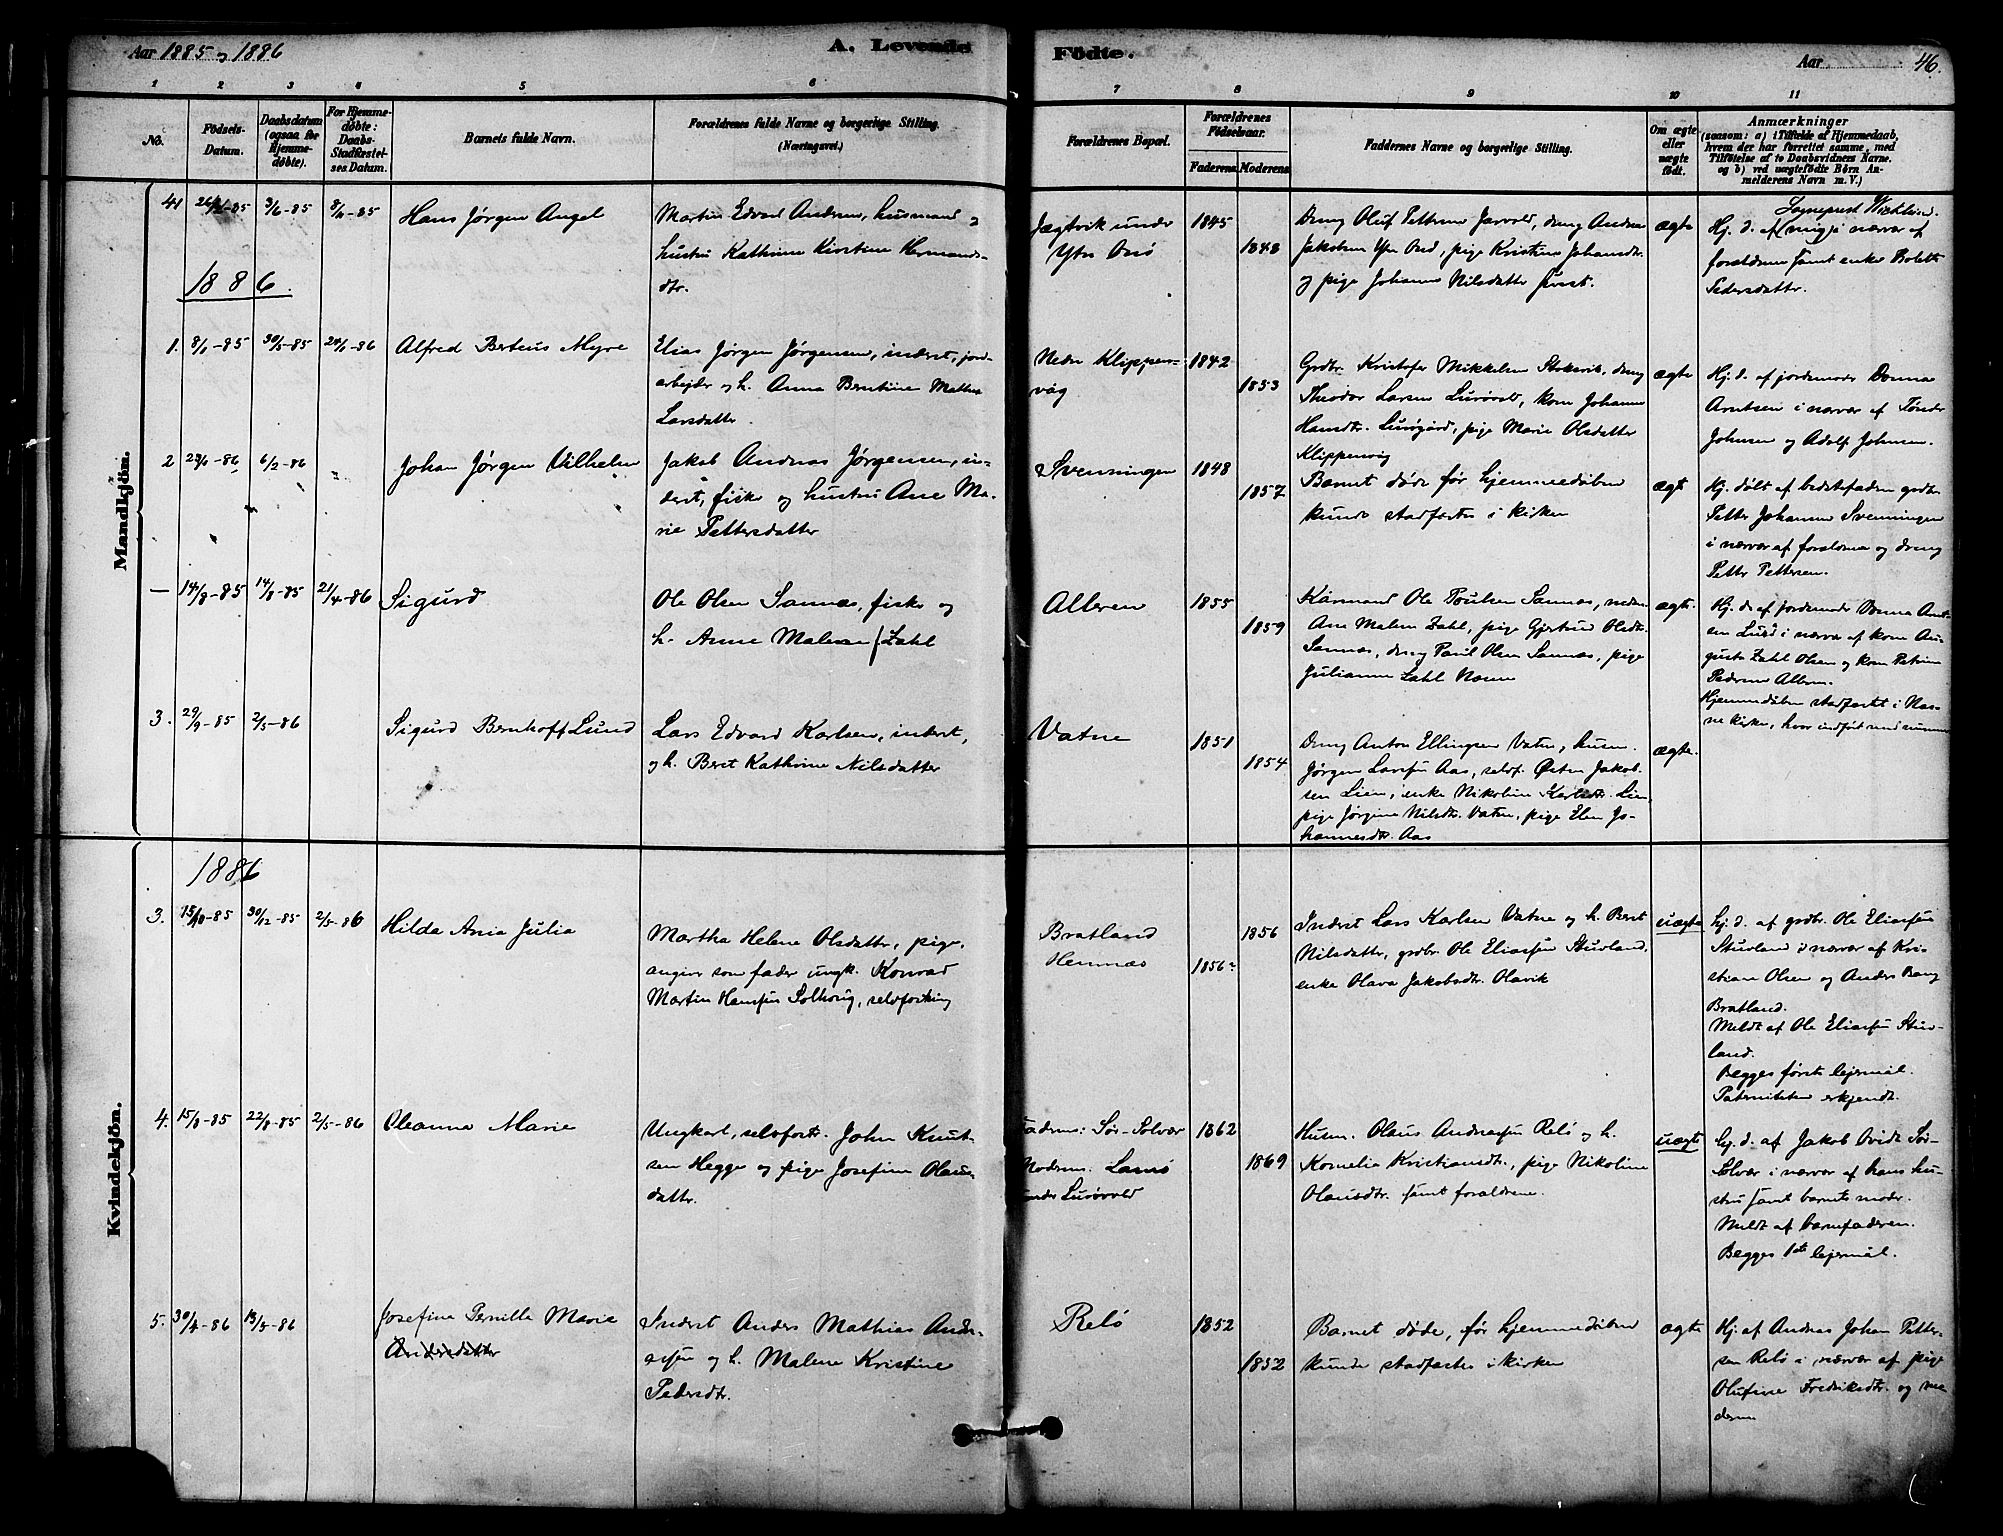 Aar 1885 og 1886
A. Levende
Födte.
Aar
46.
1 2 3 4 5 6 7 8 9 10 11
No.
Födsels-Datum.
Daabsdatum (ogsaa for Hjemmedøbte).
For Hjemmedøbte: Daabs-Stadfæstelses Datum.
Barnets fulde Navn.
Forældrenes fulde Navne og borgerlige Stilling. (Næringsvei.)
Forældrenes Bopæl.
Forældrenes Födselsaar.
Faderens Moderens
Faddernes Navne og borgerlige Stilling.
Om ægte eller uægte födt.
Anmærkninger
(saasom: a) i Tilfælde af Hjemmedaab, hvem der har forrettet samme, med Tilföielse af to Daabsvidners Navne. og b) ved uægtefödte Börn Anmelderens Navn m. V.)
Mandkjön.
41 3/6-85 8/11-85
Hans Jørgen Angel
Martin Edvard Andersen, husmand og
hustru Kathrine Kirstine Hermands-
dtr.
Jægtvik under
Ytre Onø
1845
1848
Dreng Oluf Pettersen Jarvold, dreng Andreas
Jakobsen Ytre Onø, pige Kristine Johansdtr.
og pige Johanna Nilsdatter
ægte
Sogneprest
Hj. d. af (mig) i nærvær af
forældrene samt enke Bolette
Pedersdatter.
1886.
1. 8/1-85 30/5-85 24/1-86
Alfred Berteus Myre
Elias Jørgen Jørgensen, inderst, jord-
arbejder og h. Anna Bentine Mathea
Larsdatter.
Nedre Klippen-
våg
1842
1853
Grdbr. Kristofer Mikkelsen Stokvik, dreng
Theodor Larsen Lurøvold, kone Johanna
Hansdtr. Lurøgård, pige Marie Olsdatter
Klippenvåg
ægte
Hj. d. af jordemoder Donna
Arntsen i nærvær af Tønder
Johnsen og Adolf Johnsen.
2 29/1-86 6/2-86 "
Johan Jørgen Vilhelm
Jakob Andreas Jørgensen, in-
derst, fisker og hustru Ane Ma-
rie Pettersdatter
Svenningen
1848
1857
Barnet døde før hjemmedåben
kunde stadfæstes i kirken
ægte
Hj. døbt af bedstefaderen grdbr.
Petter Johannesen Svenningen
i nærvær af forældrene og dreng
Petter Pettersen.
— 14/8-85 14/8-85 21/4-86
Sigurd
Ole Olsen Sannæs, fisker og
h. Anne Malene / Zahl
Alleren
1855
1859
Kårmand Ole Poulsen Sannæs,
Ane Malene Zahl, pige Gjertrud Olsdtr.
Sannæs, dreng Paul Olsen Sannæs, pige
Julianne Zahl Næsne
ægte.
Hj. d. af jordemoder Donna Arnt-
sen Lurø i nærvær af kone Au-
gusta Zahl Olsen og kone Petrine
Pedersen Alleren.
Hjemmedåben stadfæstet i Næs-
ne kirke, hvor indført med nummer
3. 29/9-85 2/5-86
Sigurd Bernhoff Lund
Lars Edvard Karlsen, inderst,
og h. Beret Kathrine Nilsdatter
Vatne
1851
1854
Dreng Anton Ellingsen Vatne, husm.
Jørgen Larssen Aas, selvf. Østen Jakob-
sen Lien, enke Nikoline Karlsdtr. Lien,
pige Jørgine Nilsdtr. Vatne, pige Elen Jo-
hannesdtr. Aas
ægte.
Kvindekjön.
1886
3. 15/10-85 30/12-85 2/5-86
Hilda Ania Julia
Martha Helene Olsdatter, pige,
angiver som fader ungk. Konrad
Martin Hanssen Solhoug, selvforsørg
Bratland
Hemnæs
1856
1856
Inderst Lars Karlsen Vatne og h. Beret
Nilsdatter, grdbr. Ole Eliassen Stuvland,
enke Olava Jakobsdtr. Olavik
uægte
Hj. d. af grdbr. Ole Eliassen
Stuvland i nærvær af Kri-
stian Olsen og Anders Bang
Bratland.
Meldt af Ole Eliassen Stuv-
land.
Begges første lejermål.
Paterniteten erkjendt.
4. 15/8-85 22/8-85 2/5-86
Oleanna Marie
Ungkarl, selvfors. John Knut-
sen Hegge og pige Josefine Olaus-
datter.
Faderens: Sør-Solvær
Moderens: Lamø
under Lurøvold
1862
1869
Husm. Olaus Andreassen Relø og h.
Kornelia Kristiansdtr., pige Nikoline
Olausdtr. samt forældrene.
uægte
Hj. d. af Jakob Svidt Sør-
Solvær i nærvær af hans hu-
stru samt barnets moder.
Meldt af barnefaderen.
Begges 1ste lejermål.
5. 30/4-86 13/5-86
Josefine Pernille Marie
Andersdatter
Inderst Anders Mathias Andr-
eassen og h. Malene Kristine
Pedersdtr.
Relø
1852
1852
Barnet døde, før hjemmedåben
kunde stadfæstes i kirken
ægte
Hj. af Andreas Johan Petter-
sen Relø i nærvær af pige
Olufine Fredriksdtr. og mo-
deren